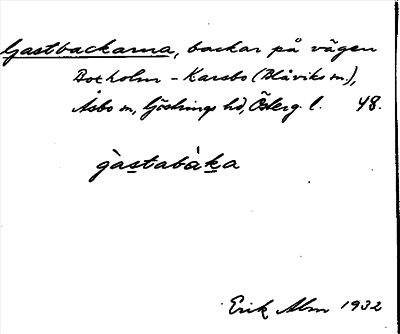 Gastbackarna, backar på vägen
Boxholm - Karsbo (Blåviks sn.),
Åsbo sn, Göstrings hd, Österg. l. 48.
gàstabàka
Erik Alm 1932